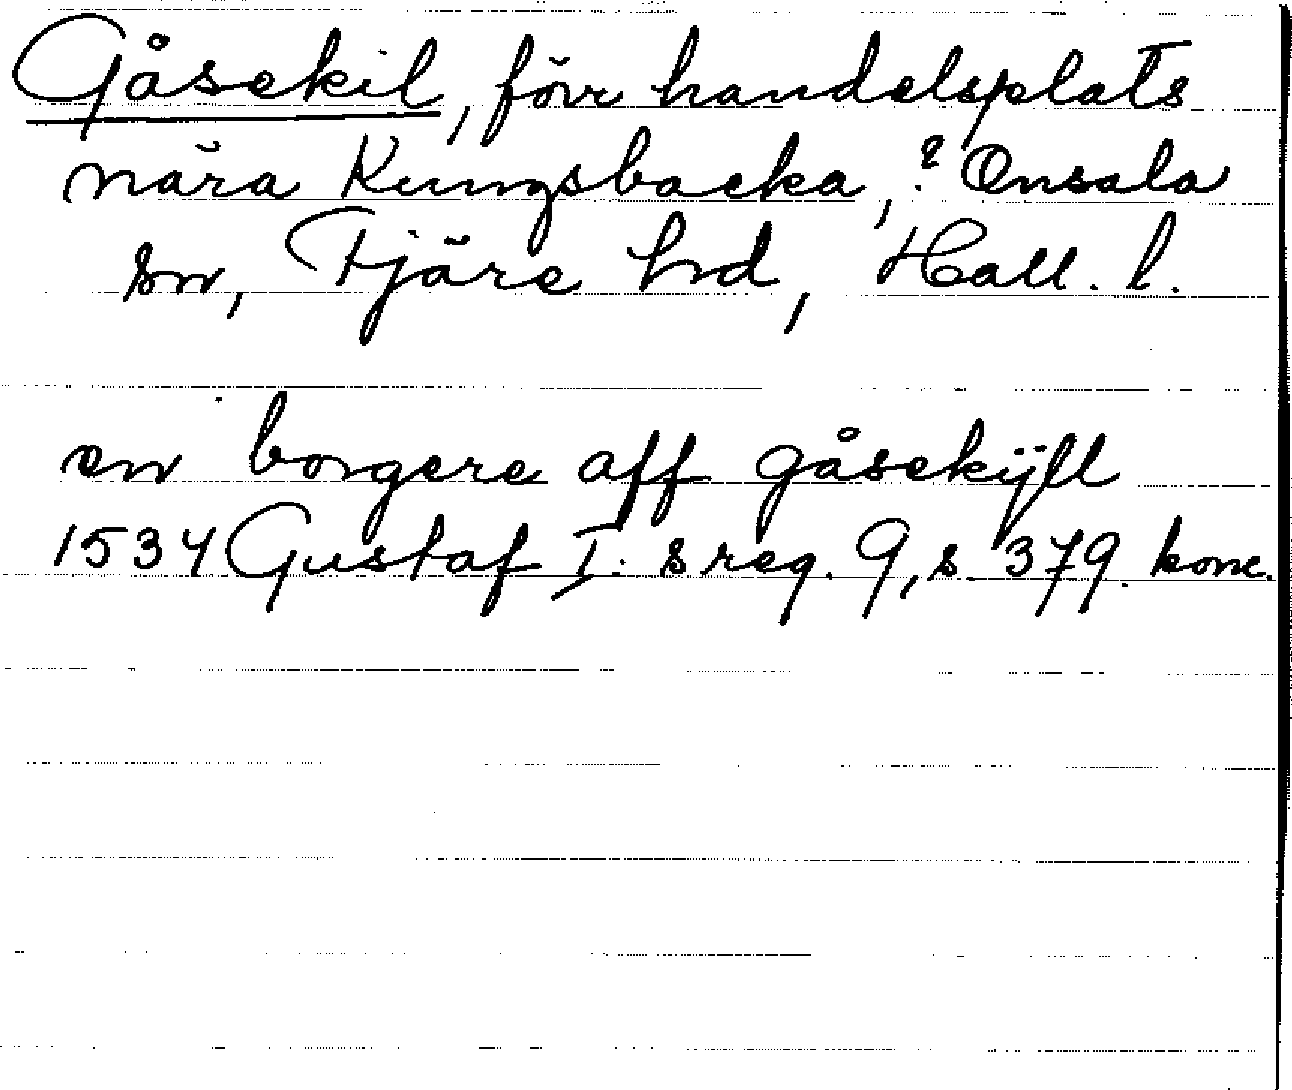 Gåsekil, förr handelsplats
nära Kungsbacka, ? Onsala
sn, Fjäre hd, Hall. l.
en borgere aff gåsekÿll
1534 Gustaf I:s reg. 9, s 379. konc.